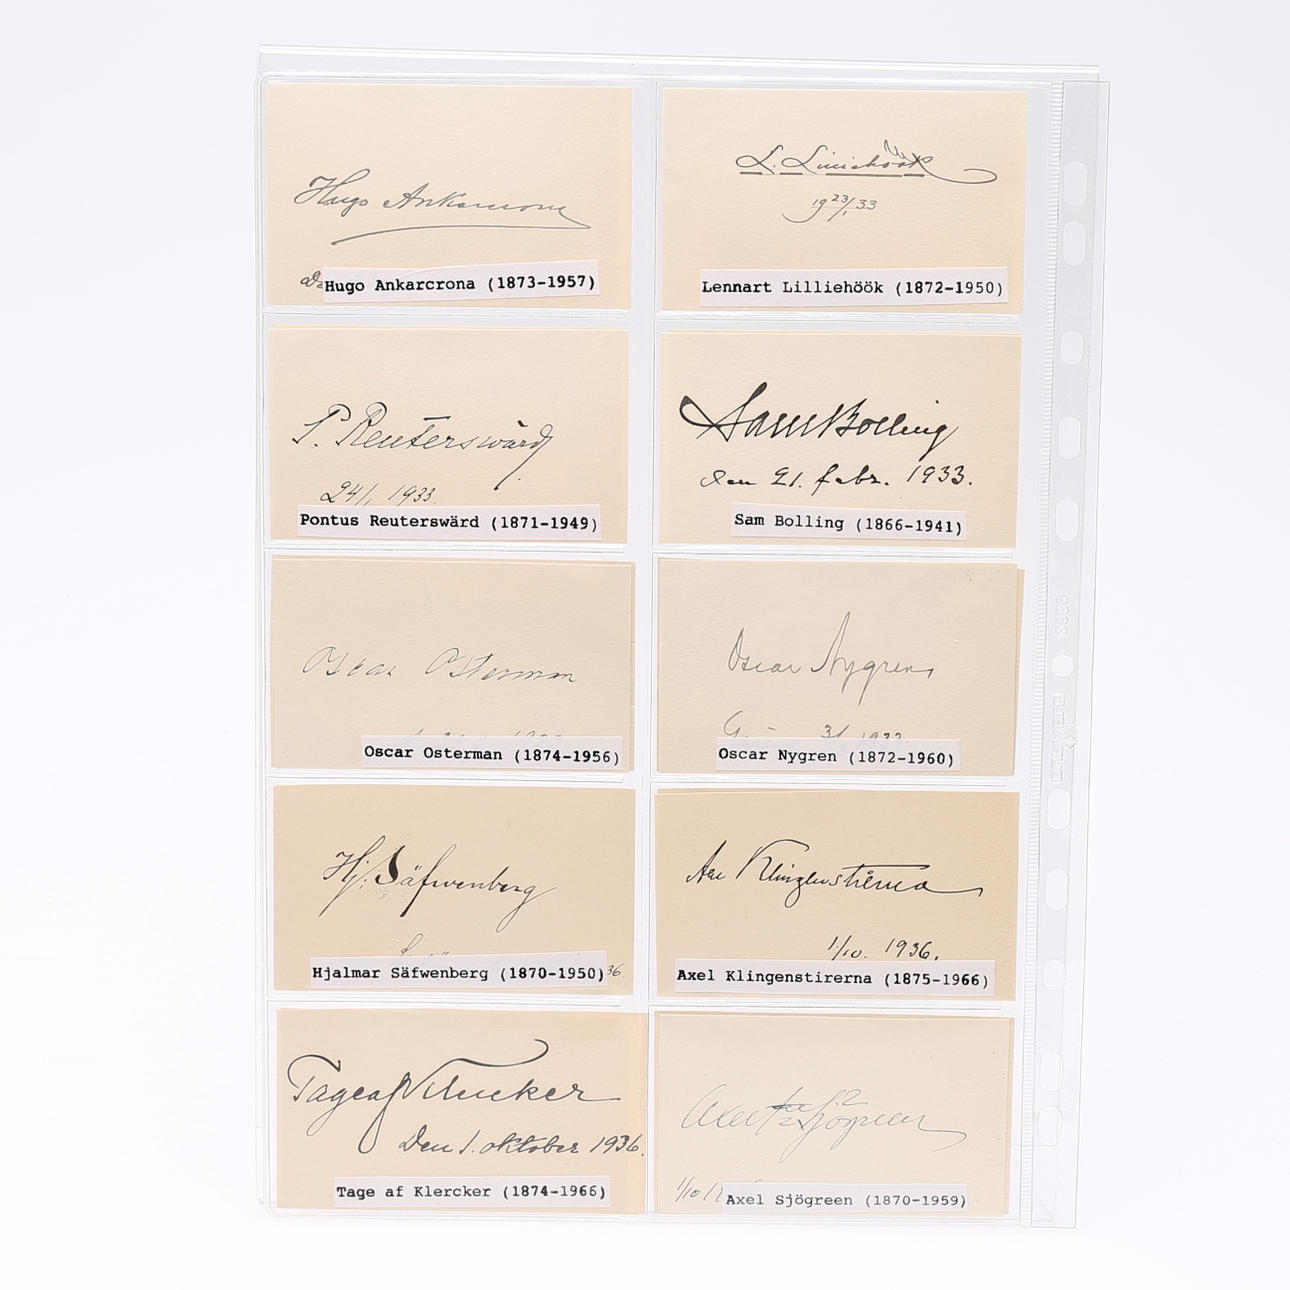 Hugo Ankarcrona
Hugo Ankarcrona (1873-1957)
L. Lilliehöök
19 23/1 33
Lennart Lilliehöök (1872-1950)
P. Reuterswärd
24/1 1933.
Pontus Reuterswärd (1871-1949)
Sam Bolling
den 21. febr. 1933.
Sam Bolling (1866-1941)
Oscar Osterman
Oscar Osterman (1874-1956)
Oscar Nygren
Oscar Nygren (1872-1960)
Hj. Säfwenberg
36.
Hjalmar Säfwenberg (1870-1950)
Axel Klingenstierna
1/10. 1936.
Axel Klingenstirerna (1875-1966)
Tage af Klercker
Den 1. oktober 1936.
Tage af Klercker (1874-1966)
Axel Sjögreen
1/10
Axel Sjögreen (1870-1959)